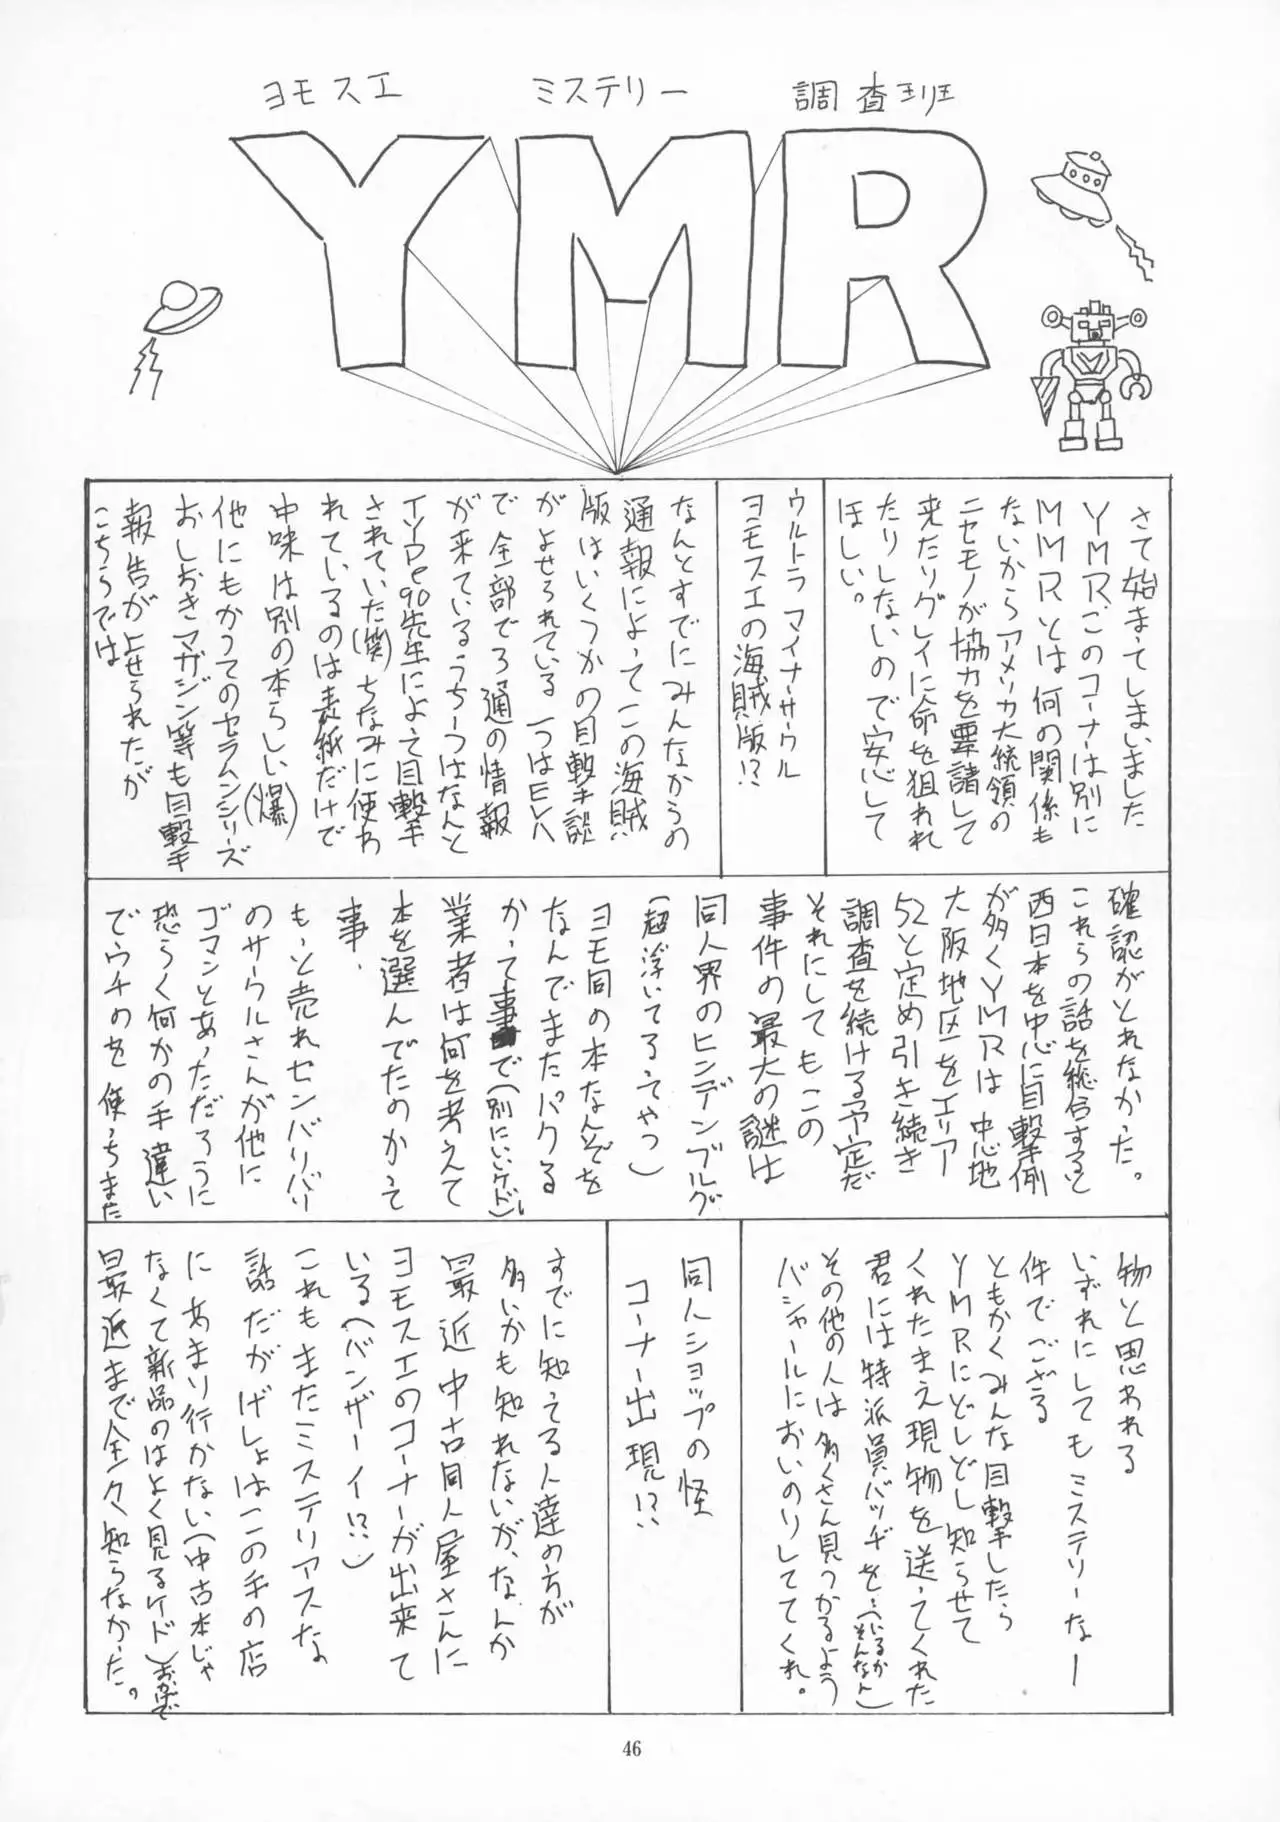 ヨモスエ ミステリー 調査班
YMR
さて始まってしまいました
YMR、このコーナーは別に
MMRとは何の関係も
ないからアメリカ大統領の
ニセモノが協力を要請して
来たりグレイに命を狙われ
たりしないので安心して
ほしい。
ウルトラ マイナーサークル
ヨモスエの海賊版!?
なんとすでにみんなからの
通報によってこの海賊
版はいくつかの目撃談
がよせられている 一つはEVA
で全部で3通の情報
が来ているうち一つはなんと
TYPe90先生によって目撃
されていた(笑)ちなみに使わ
れているのは表紙だけで
中味は別の本らしい(爆)
他にもかつてのセラムンシリーズ
おしおきマガジン等も目撃
報告がよせられたが
こちらでは
確認がとれなかった。
これらの話を総合すると
西日本を中心に目撃例
が多くYMRは 中心地
大阪地区をエリア
52と定め引き続き
調査を続ける予定だ
それにしてもこの
事件の最大の謎は
同人界のヒンデンブルグ
(超浮いてるってやつ)
ヨモ同の本なんぞを
なんでまたパクる
かって事で(別にいいケドし)
業者は何を考えて
本を選んでたのかって
事、
もっと売れセンバリバリ
のサークルさんが他に
ゴマンとあっただろうに
恐らく何かの手違い
でウチのを使っちまた
物と思われる
いずれにしてもミステリーなー
件でござる
ともかくみんな目撃したら
YMRにどしどし知らせて
くれたまえ現物を送ってくれた
君には特派員バッヂを…(いるかそんなん)
その他の人は多くさん見つかるよう
バシャールにおいのりしててくれ。
同人ショップの怪
コーナー出現!?
すでに知ってる人達の方が
多いかも知れないが、なんか
最近中古同人屋さんに
ヨモスエのコーナーが出来て
いる(バンザーイ!?)
これもまたミステリアスな
話だがげしょはこの手の店
にあまり行かない(中古本じゃ
なくて新品のはよく見るケド)おかげで
最近まで全々知らなかった。
46